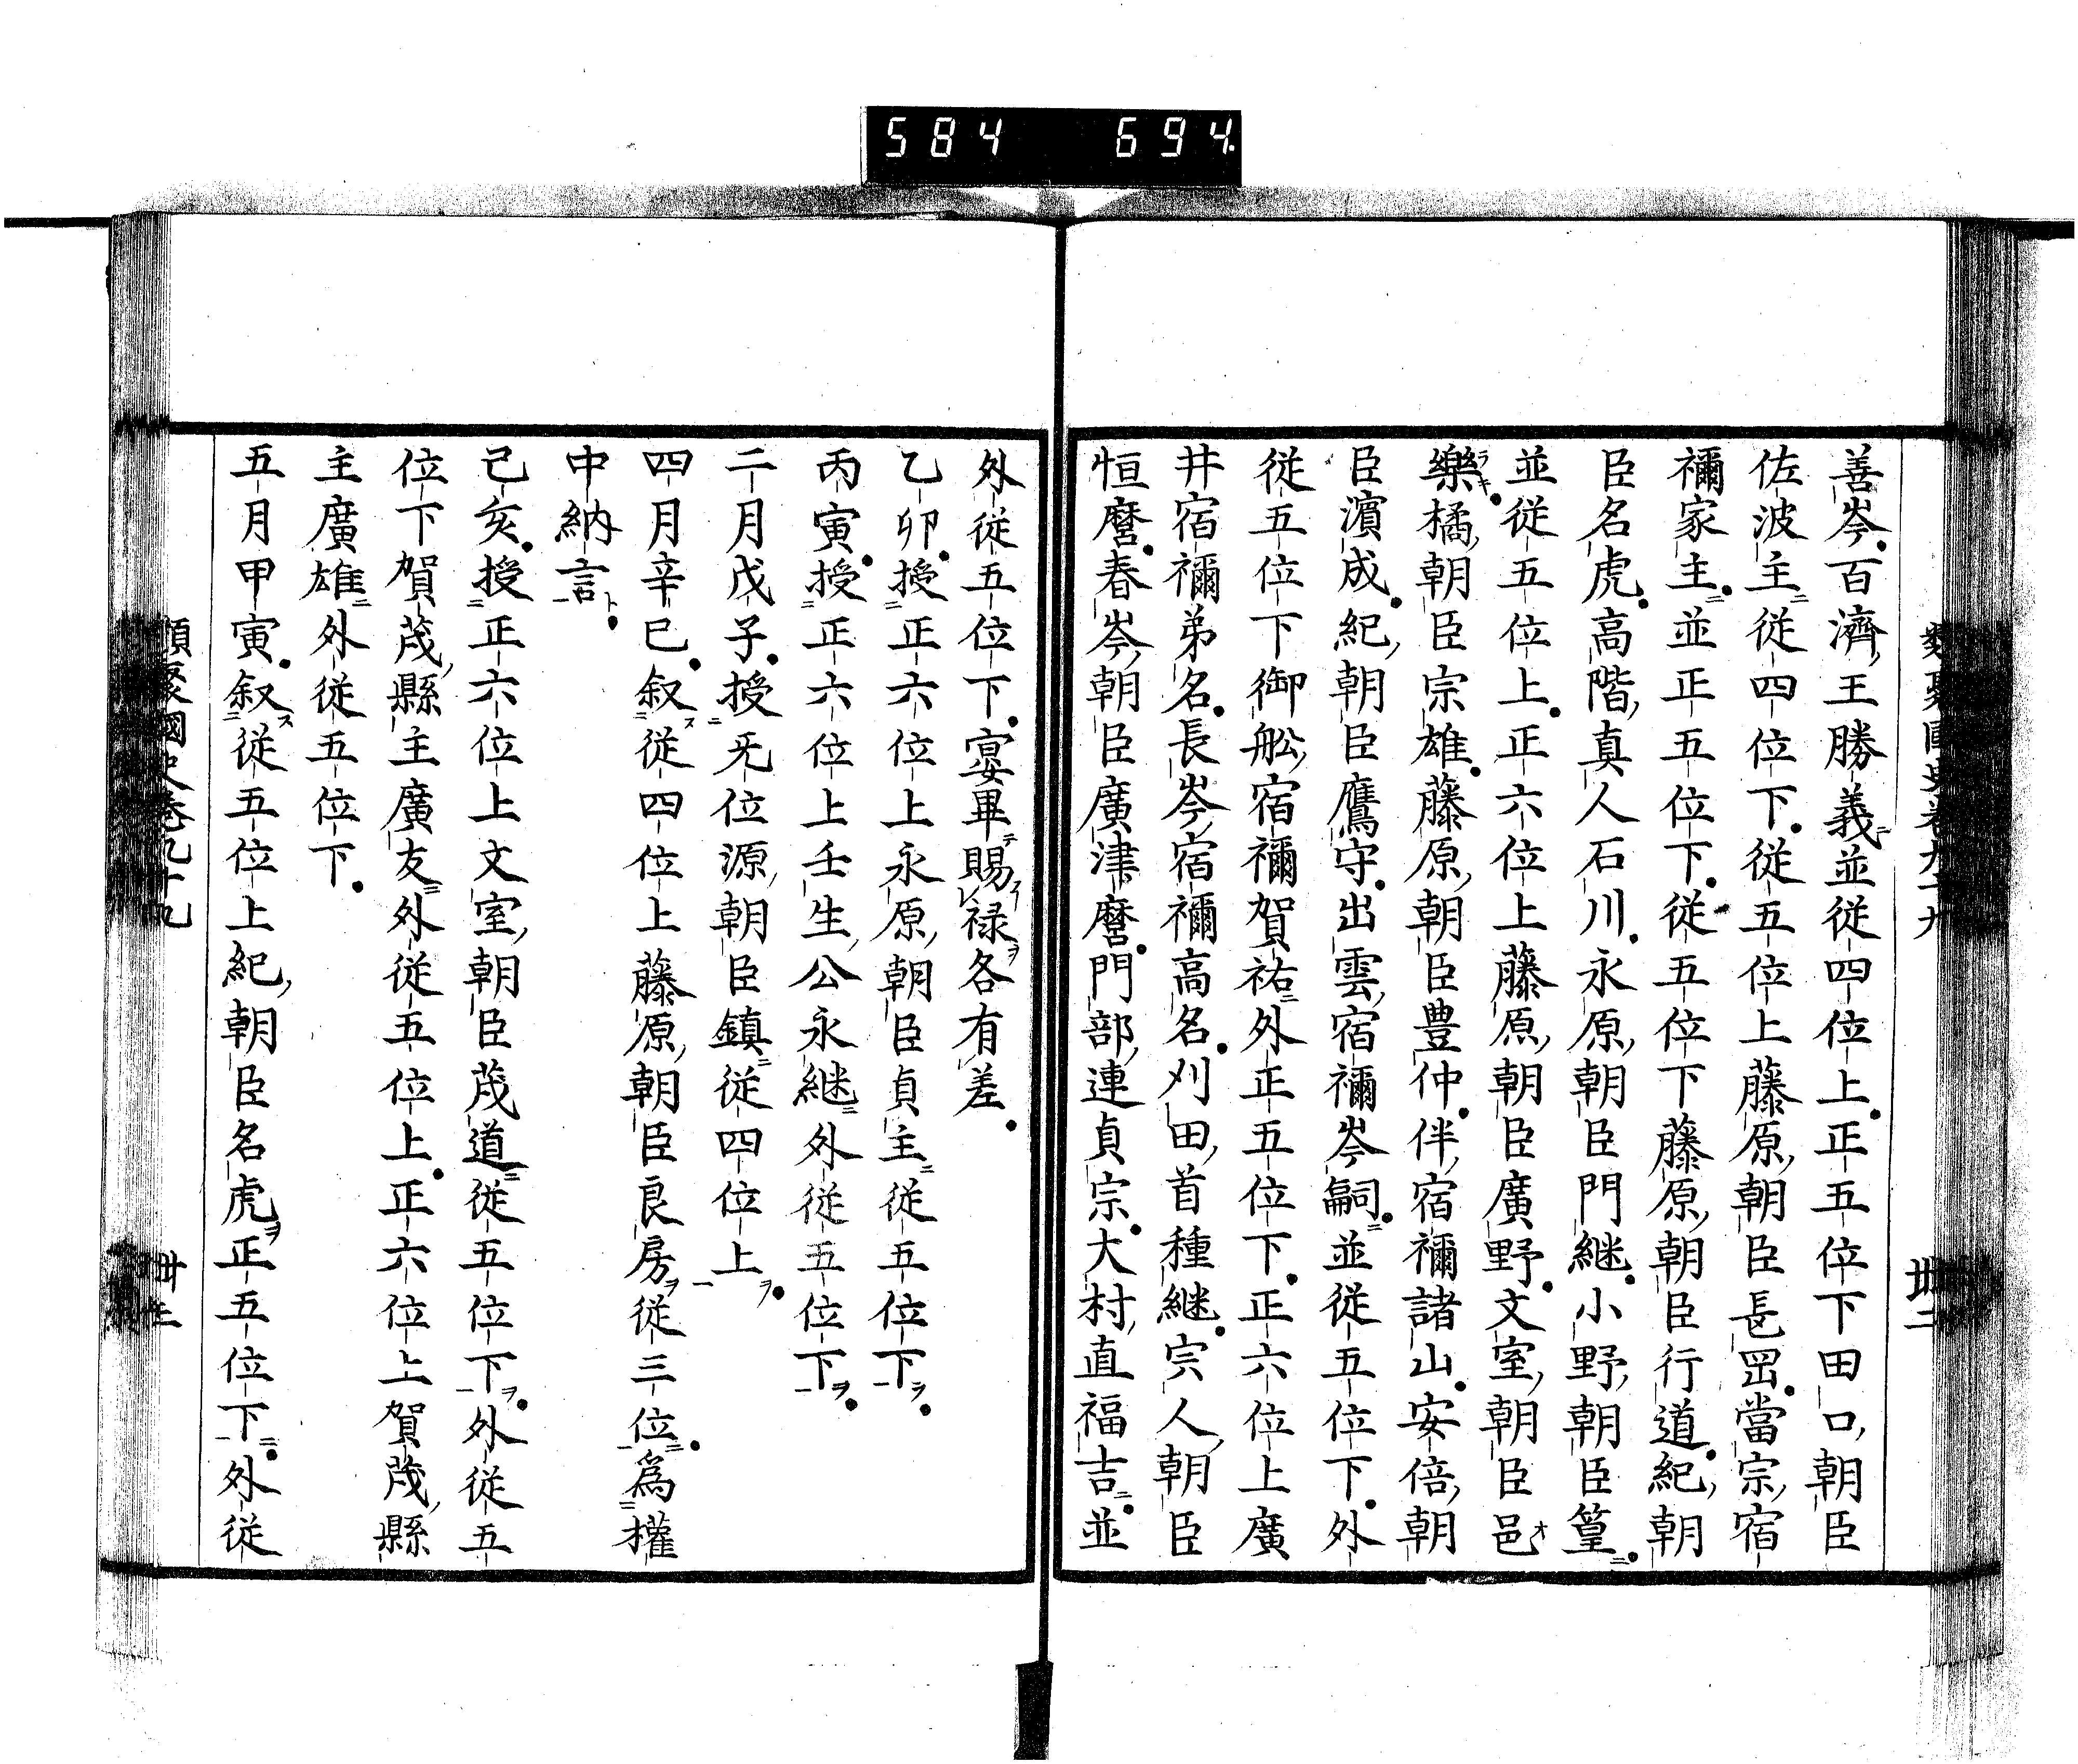 584 694.
類聚國史卷九十九 卌二
善岑百濟王勝義並從四位上正五位下田口朝臣
佐波主從四位下從五位上藤原朝臣長岡當宗宿
禰家主並正五位下從五位下藤原朝臣行道紀朝
臣名虎高階真人石川永原朝臣門継小野朝臣篁
並從五位上正六位上藤原朝臣廣野文室朝臣邑
樂橘朝臣宗雄藤原朝臣豊仲伴宿禰諸山安倍朝
臣濵成紀朝臣鷹守出雲宿禰岑嗣並從五位下外
從五位下御舩宿禰賀祐外正五位下正六位上廣
井宿禰弟名長岑宿禰高名刈田首種継宍人朝臣
恒麿春岑朝臣廣津麿門部連貞宗大村直福吉並
外從五位下宴畢賜禄各有差
乙卯授正六位上永原朝臣貞主從五位下
丙寅授正六位上壬生公永継外從五位下
二月戊子授无位源朝臣鎮從四位上
四月辛巳叙從四位上藤原朝臣良房從三位為權
中納言
己亥授正六位上文室朝臣茂道從五位下外從五
位下賀茂縣主廣友外從五位上正六位上賀茂縣
主廣雄外從五位下
五月甲寅叙從五位上紀朝臣名虎正五位下外從
類聚國史卷九十九 卌三